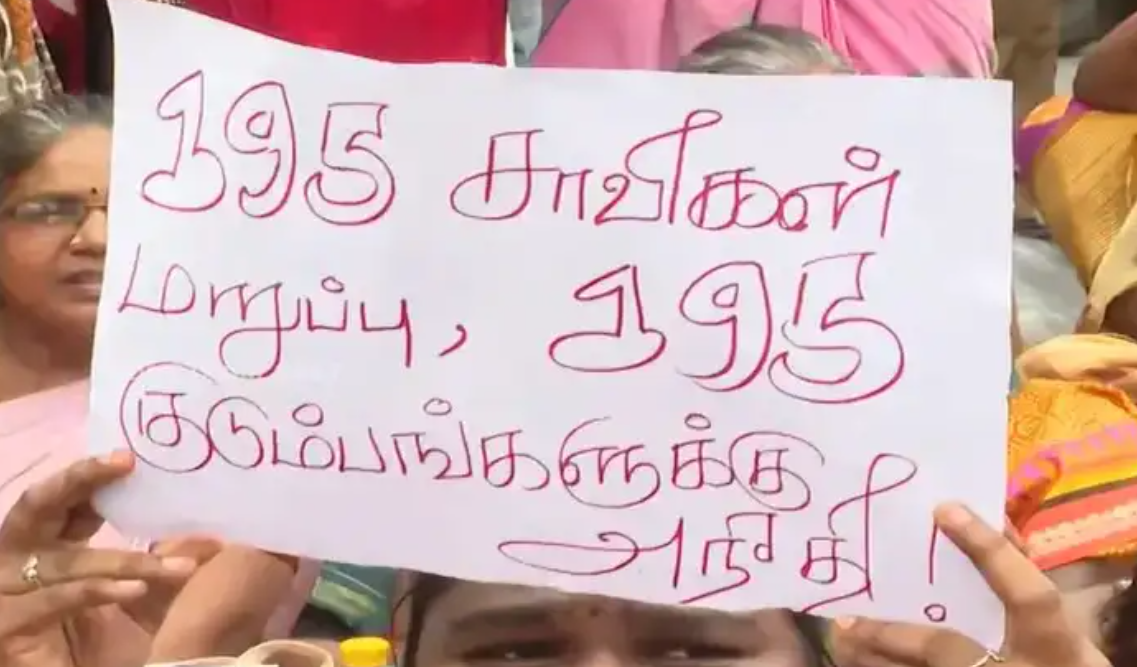 195 சாவிகள்
மறுப்பு, 195
குடும்பங்களுக்கு
அநீதி!